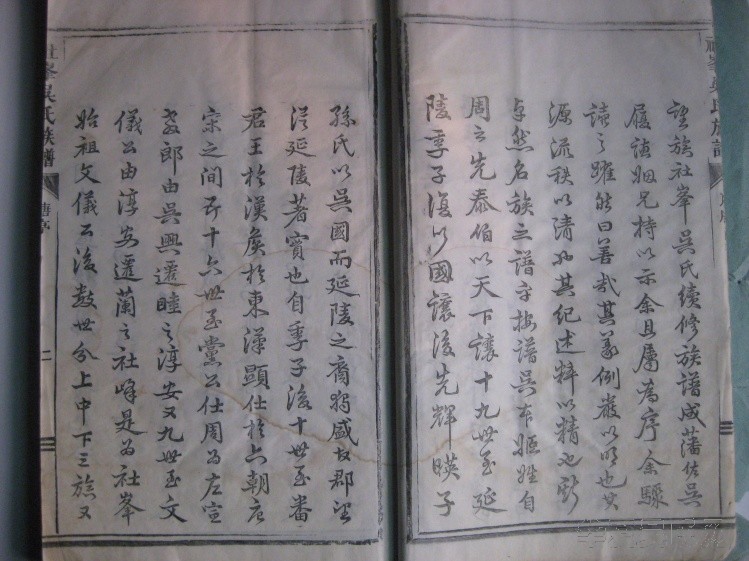 望族社峯吳氏續修族譜成藩佐吳
履諱姻兄持以示余且屬為序余驟
讀之躍然曰善哉其義例嚴以明也其
源流秩以清也其紀述粹以精也斯
卓然名族之譜乎按譜吳本姬姓自
周之先泰伯以天下讓十九世至延
陵季子復以國讓後先輝暎子
孫氏以吳國而延陵之裔獨盛故郡望
從延陵著實也自季子後十世至番
君王於漢矦於東漢顯仕於六朝唐
宋之間歷十六世至黨公仕周為左宣
教郎由吳興遷睦之淳安又九世至文
儀公由淳安遷蘭之社峰是為社峯
始祖文儀公後數世分上中下三族又
社峯吳氏族譜
舊序
二